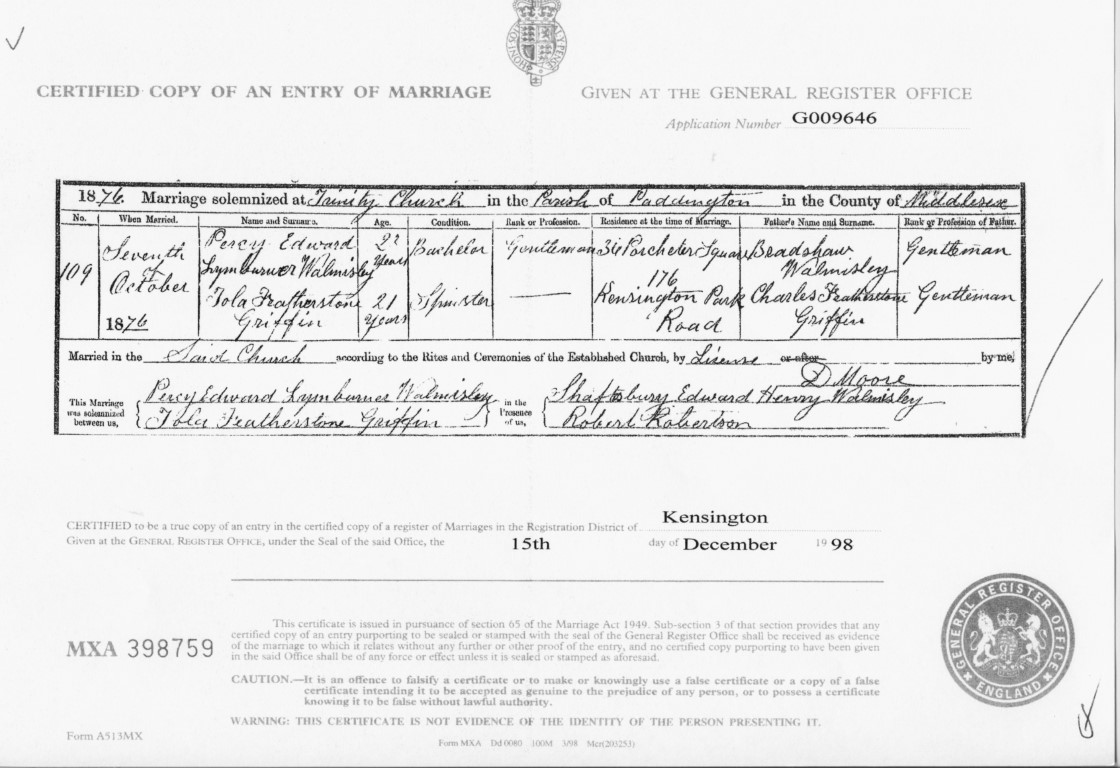 CERTIFIED COPY OF AN ENTRY OF MARRIAGE
GIVEN AT THE GENERAL REGISTER OFFICE
Application Number G009646
1876. Marriage solemnized at Trinity Church in the Parish of Paddington in the County of Middlesex
No. When Married. Name and Surname. Age. Condition. Rank or Profession. Residence at the time of Marriage. Father's Name and Surname. Rank or Profession of Father.
109 Seventh of October 1876
Percy Edward Lymburner Walmisley 22 Years Bachelor Gentleman Porchester Square Bradshaw Walmisley Gentleman
Iola Featherstone Griffin 21 Years Spinster — 176 Kensington Park Road Charles Featherstone Griffin Gentleman
Married in the Said Church according to the Rites and Ceremonies of the Established Church, by License or after by me,
D Moore
This Marriage was solemnized between us, Percy Edward Lymburner Walmisley in the Presence of us, Shaftsbury Edward Henry Walmisley
Iola Featherstone Griffin Robert Robertson
CERTIFIED to be a true copy of an entry in the certified copy of a register of Marriages in the Registration District of Kensington
Given at the GENERAL REGISTER OFFICE, under the Seal of the said Office, the 15th day of December 1998
This certificate is issued in pursuance of section 65 of the Marriage Act 1949. Sub-section 3 of that section provides that any
certified copy of an entry purporting to be sealed or stamped with the seal of the General Register Office shall be received as evidence
of the marriage to which it relates without any further or other proof of the entry, and no certified copy purporting to have been given
in the said Office shall be of any force or effect unless it is sealed or stamped as aforesaid.
MXA 398759
CAUTION.—It is an offence to falsify a certificate or to make or knowingly use a false certificate or a copy of a false
certificate intending it to be accepted as genuine to the prejudice of any person, or to possess a certificate
knowing it to be false without lawful authority.
WARNING: THIS CERTIFICATE IS NOT EVIDENCE OF THE IDENTITY OF THE PERSON PRESENTING IT.
Form A513MX
Form MXA Dd 0080 100M 3/98 Mcr(203253)
GENERAL REGISTER OFFICE
ENGLAND